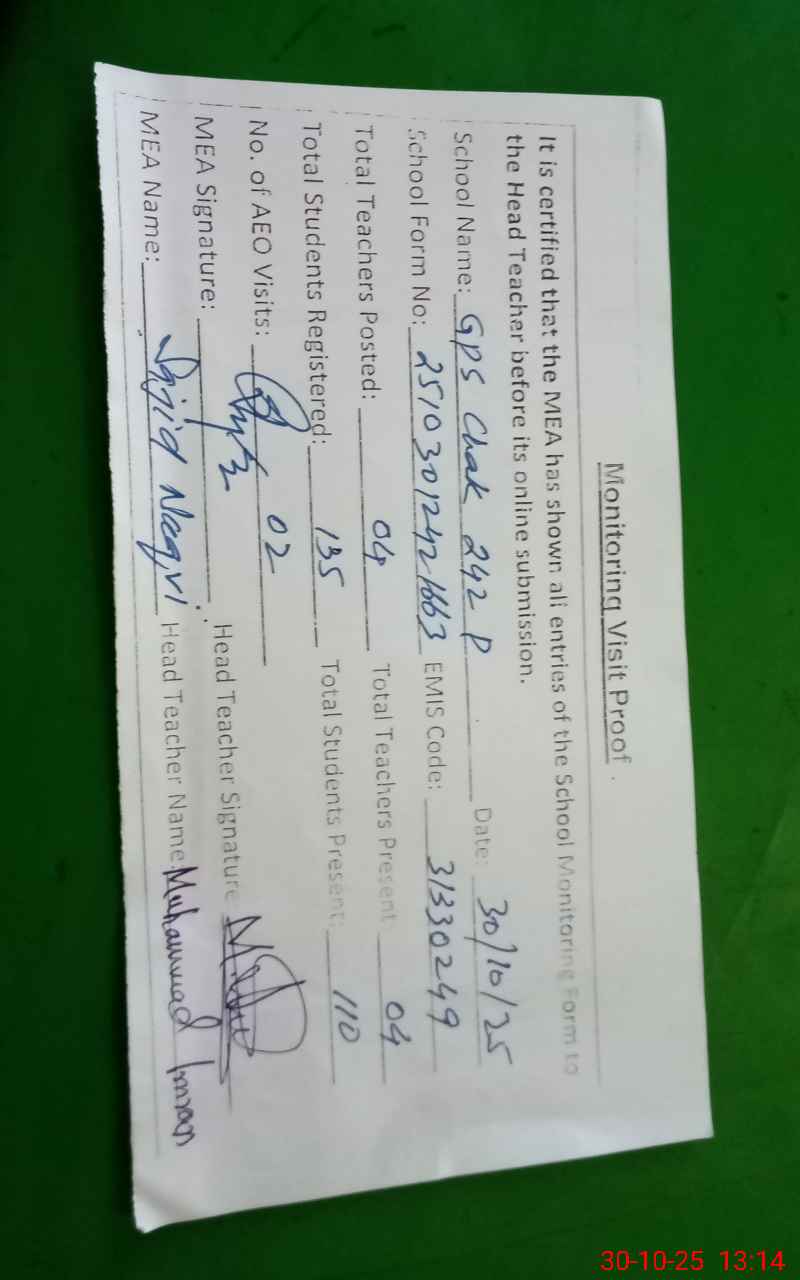 Monitoring Visit Proof
It is certified that the MEA has shown all entries of the School Monitoring Form to
the Head Teacher before its online submission.
School Name: GPS Chak 242 P Date: 30/10/25
School Form No: 25103012421663 EMIS Code: 31330249
Total Teachers Posted: 04 Total Teachers Present: 04
Total Students Registered: 135 Total Students Present: 110
No. of AEO Visits: 02
MEA Signature: Head Teacher Signature
MEA Name: Sajid Naqvi Head Teacher Name: Muhammad Imran
30-10-25 13:14